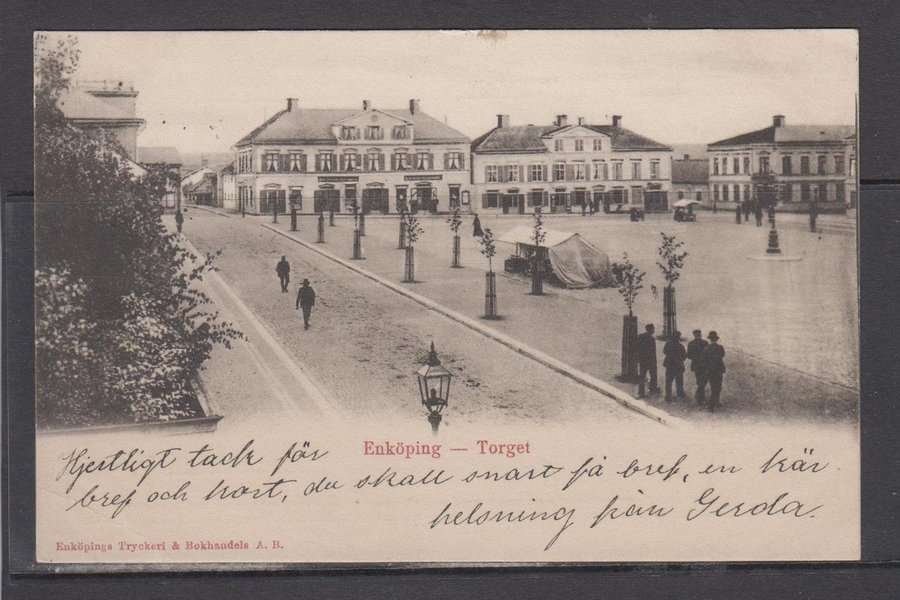 Enköping — Torget
Hjertligt tack för
bref och kort, du skall snart få bref, en kär
helsning från Gerda.
Enköpings Tryckeri & Bokhandels A. B.